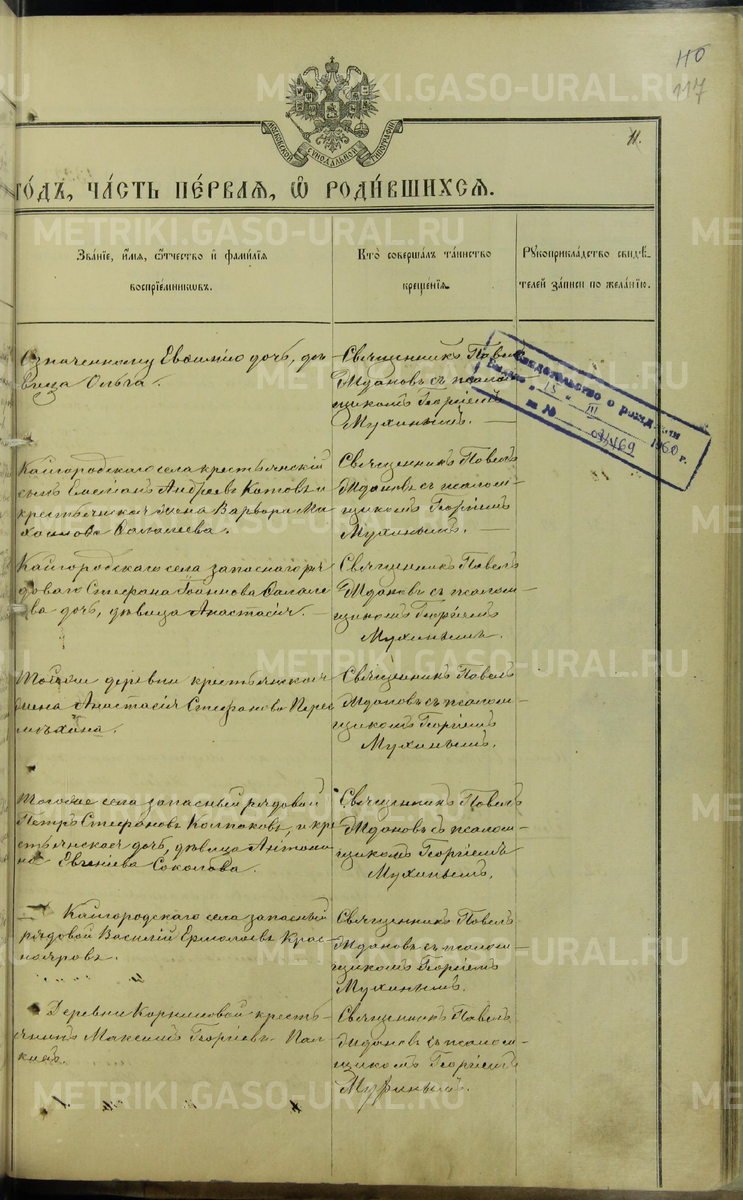 НБ
117
11.
МОСКОВСКОЙ СѴНОДАЛЬНОЙ ТИПОГРАФІИ
ГОДЪ, ЧАСТЬ ПЕРВАЯ, Ѡ РОДИВШИХСЯ.
Званіе, имя, отчество и фамилія воспріемниковъ.
Кто совершалъ таинство крещенія.
Рукоприкладство свидѣтелей записи по желанію.
Означенному Евѳимію дочь, дѣ-
вица Ольга.
Священникъ Павелъ
Ждановъ съ псалом-
щикомъ Георгіемъ
Мухинымъ.
Свидетельство о рождении
Выдано „15" III 1960 г.
за №
Кайгородскаго села крестьянскій
сынъ Емеліанъ Андреевъ Котовъ и
крестьянская жена Варвара
Священникъ Павелъ
Ждановъ съ псалом-
щикомъ Георгіемъ
Мухинымъ.
Кайгородскаго села запаснаго ря-
доваго Стефана Іоаннова
ва дочь, дѣвица Анастасія.
Священникъ Павелъ
Ждановъ съ псалом-
щикомъ Георгіемъ
Мухинымъ.
Той же деревни крестьянская
жена Анастасія Стефанова
Священникъ Павелъ
Ждановъ съ псалом-
щикомъ Георгіемъ
Мухинымъ.
Того же села запасный рядовой
Петръ Стефановъ Колпаковъ, и кре
стьянская дочь, дѣвица Антони
на Евгеніева Соколова.
Священникъ Павелъ
Ждановъ съ псалом-
щикомъ Георгіемъ
Мухинымъ.
Кайгородскаго села запасный
рядовой Василій Ермолаевъ Крас-
нояровъ.
Священникъ Павелъ
Ждановъ съ псалом-
щикомъ Георгіемъ
Мухинымъ.
Деревни Корниловой кресть-
янинъ Максимъ Георгіевъ
Священникъ Павелъ
Ждановъ съ псалом-
щикомъ Георгіемъ
Мухинымъ.
METRIKI.GASO-URAL.RU